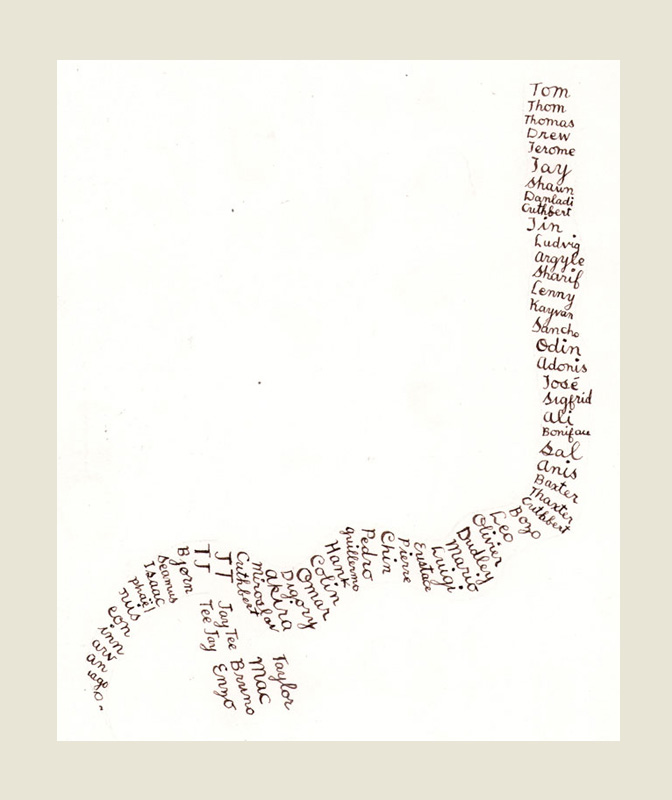 Tom
Thom
Thomas
Drew
Jerome
Jay
Shaun
Danladi
Cuthbert
Jin
Ludvig
Argyle
Sharif
Lenny
Kayvan
Sancho
Odin
Adonis
José
Sigfrid
Ali
Bonifau
Sal
Anis
Baxter
Thaxter
Cuthbert
Bozo
Leo
Olivier
Dudley
Mario
Luigi
Eustace
Pierre
Chin
Pedro
Guillermo
Hank
Colin
Omar
Digory
Akira
Miroslav
Cuthbert
JT
TJ
Jay Tee
Tee Jay
Taylor
Mac
Bruno
Enzo
Bjørn
Seamus
Isaac
phaël
nis
eon
inn
arv
an
iago
o.